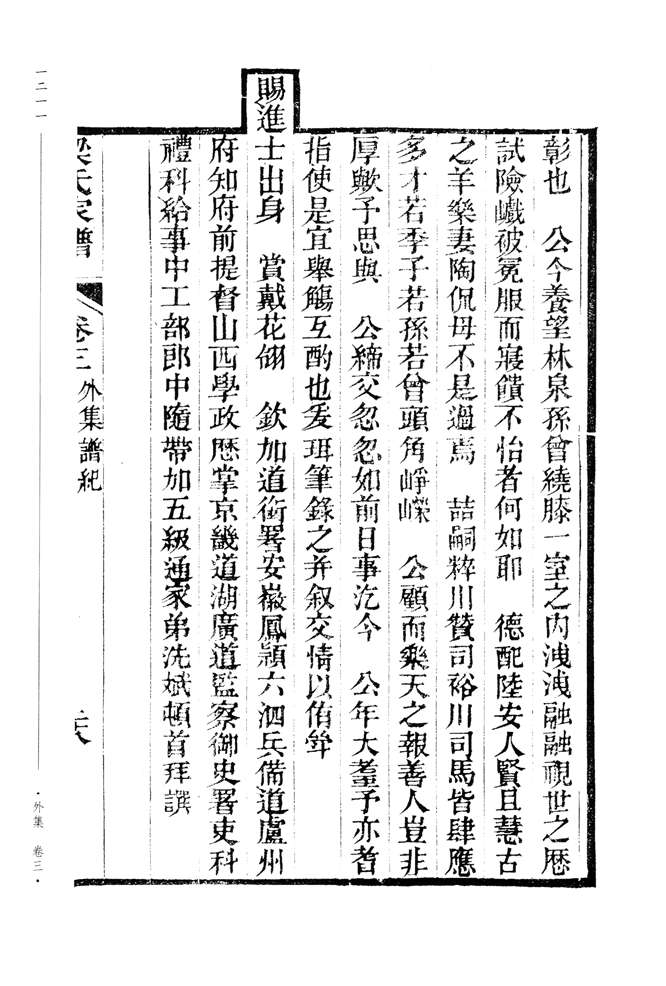 彰也　公今養望林泉孫曾繞膝一室之內洩洩融融視世之歷
試險巇破冕服而寢饋不怡者何如耶　德配陸安人賢且慧古
之羊樂妻陶侃母不是過焉　喆嗣粹川贊司裕川司馬皆肆應
多才若季子若孫若曾頭角崢嶸　公顧而樂天之報善人豈非
厚歟予思與　公締交忽忽如前日事迄今　公年大耋予亦耆
指使是宜舉觴互酌也爰珥筆錄之并叙交情以侑斝
賜進士出身　賞戴花翎　欽加道銜署安徽鳳潁六泗兵備道盧州
府知府前提督山西學政歷掌京畿道湖廣道監察御史署吏科
禮科給事中工部郎中隨帶加五級通家弟洗斌頓首拜譔
梁氏家譜　卷三　外集譜紀
一三一一
·外集　卷三·